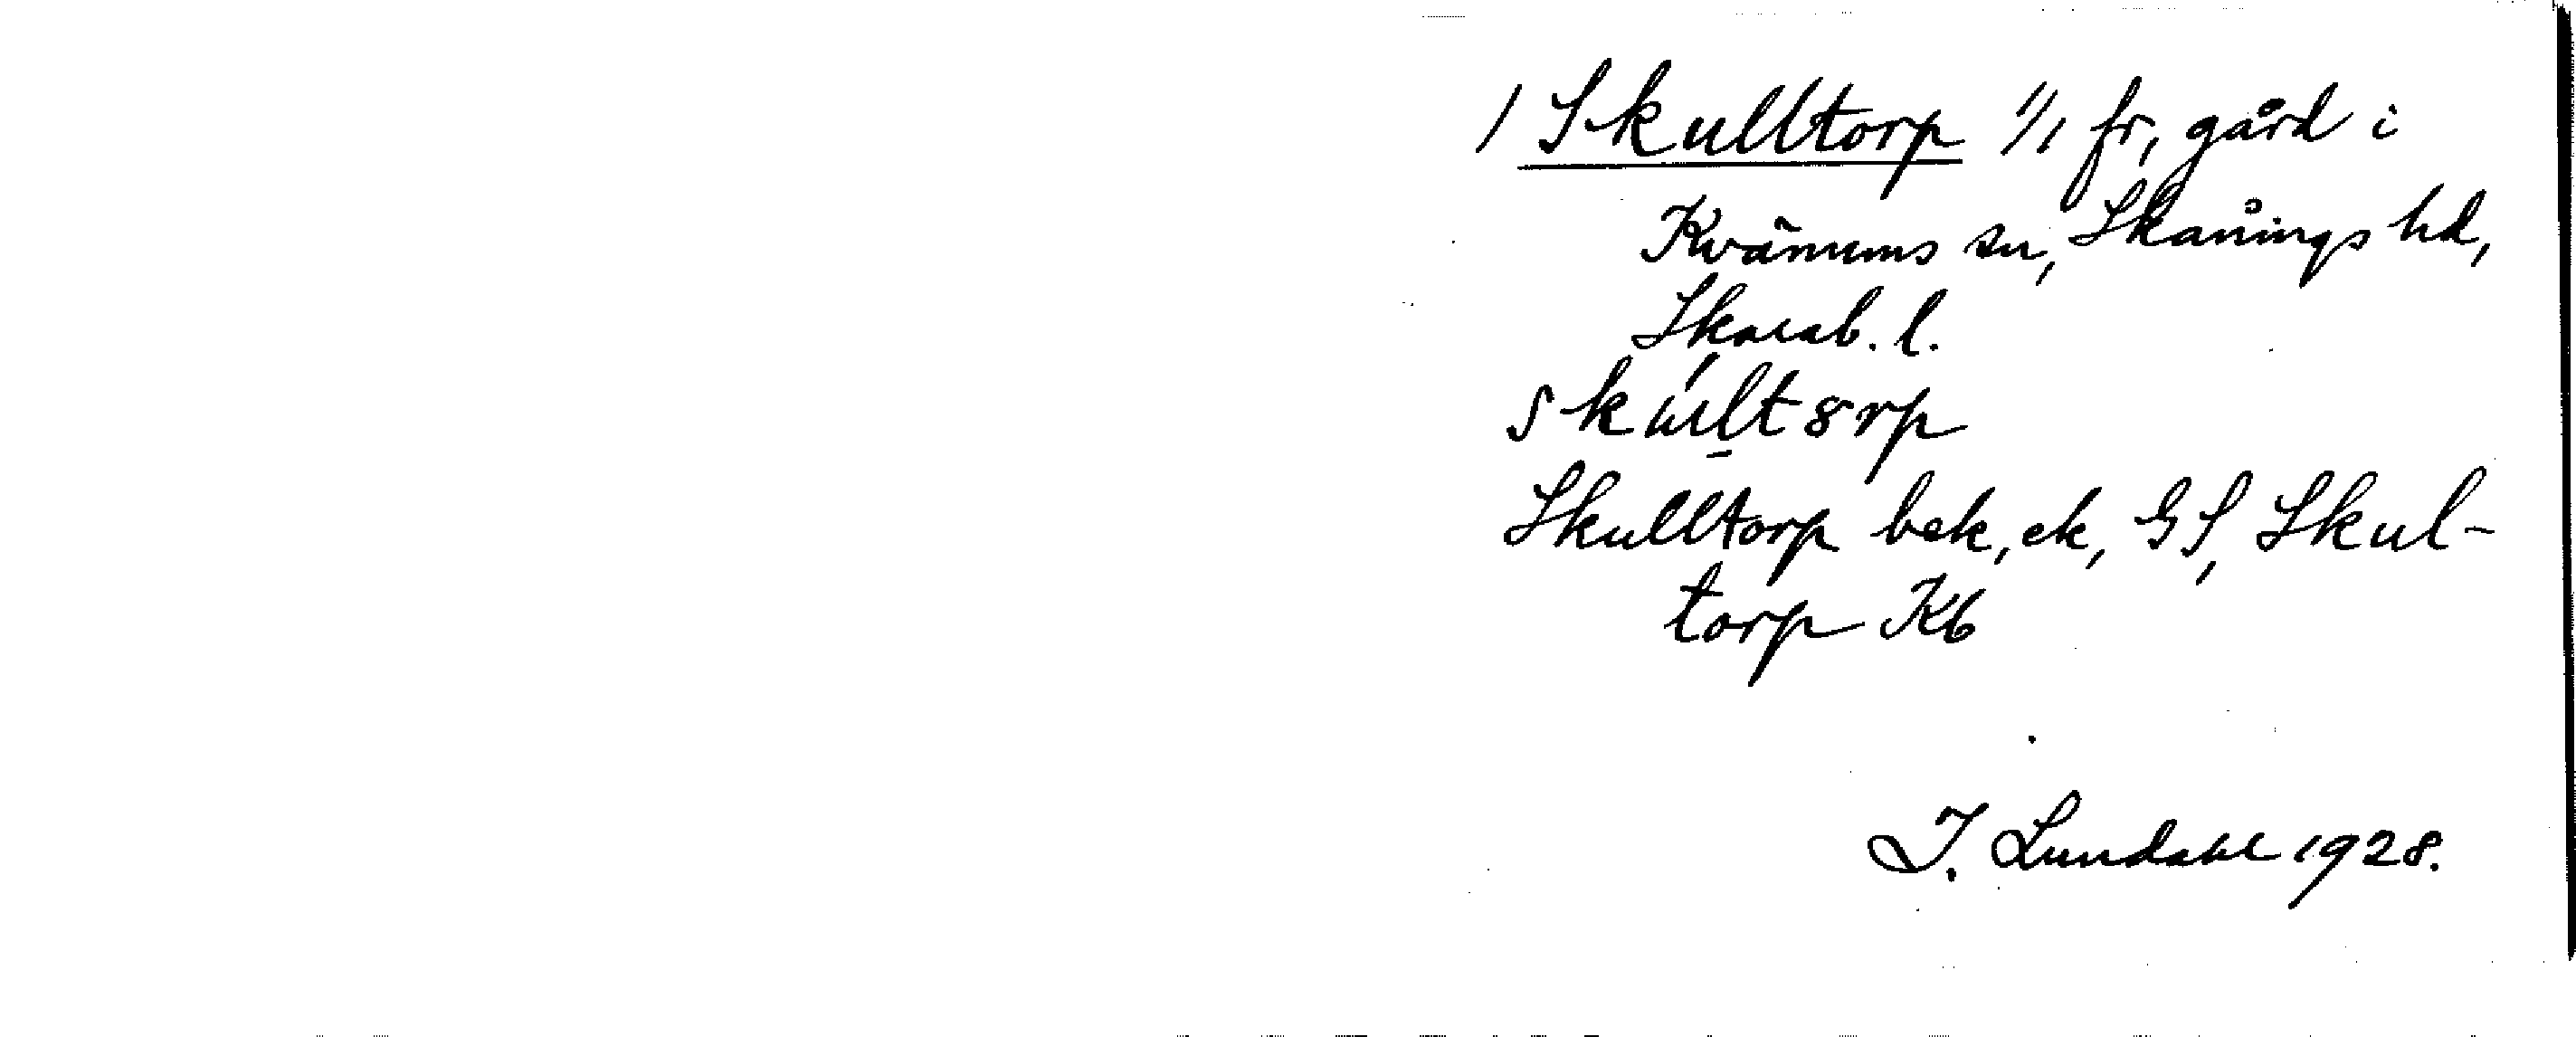 / Skulltorp 1/1 fr, gård i
Kvänums sn, Skånings hd,
Skarab. l.
skúlt8rp
Skulltorp bek, ek, GS, Skul-
torp Kb
I. Lundahl 1928.